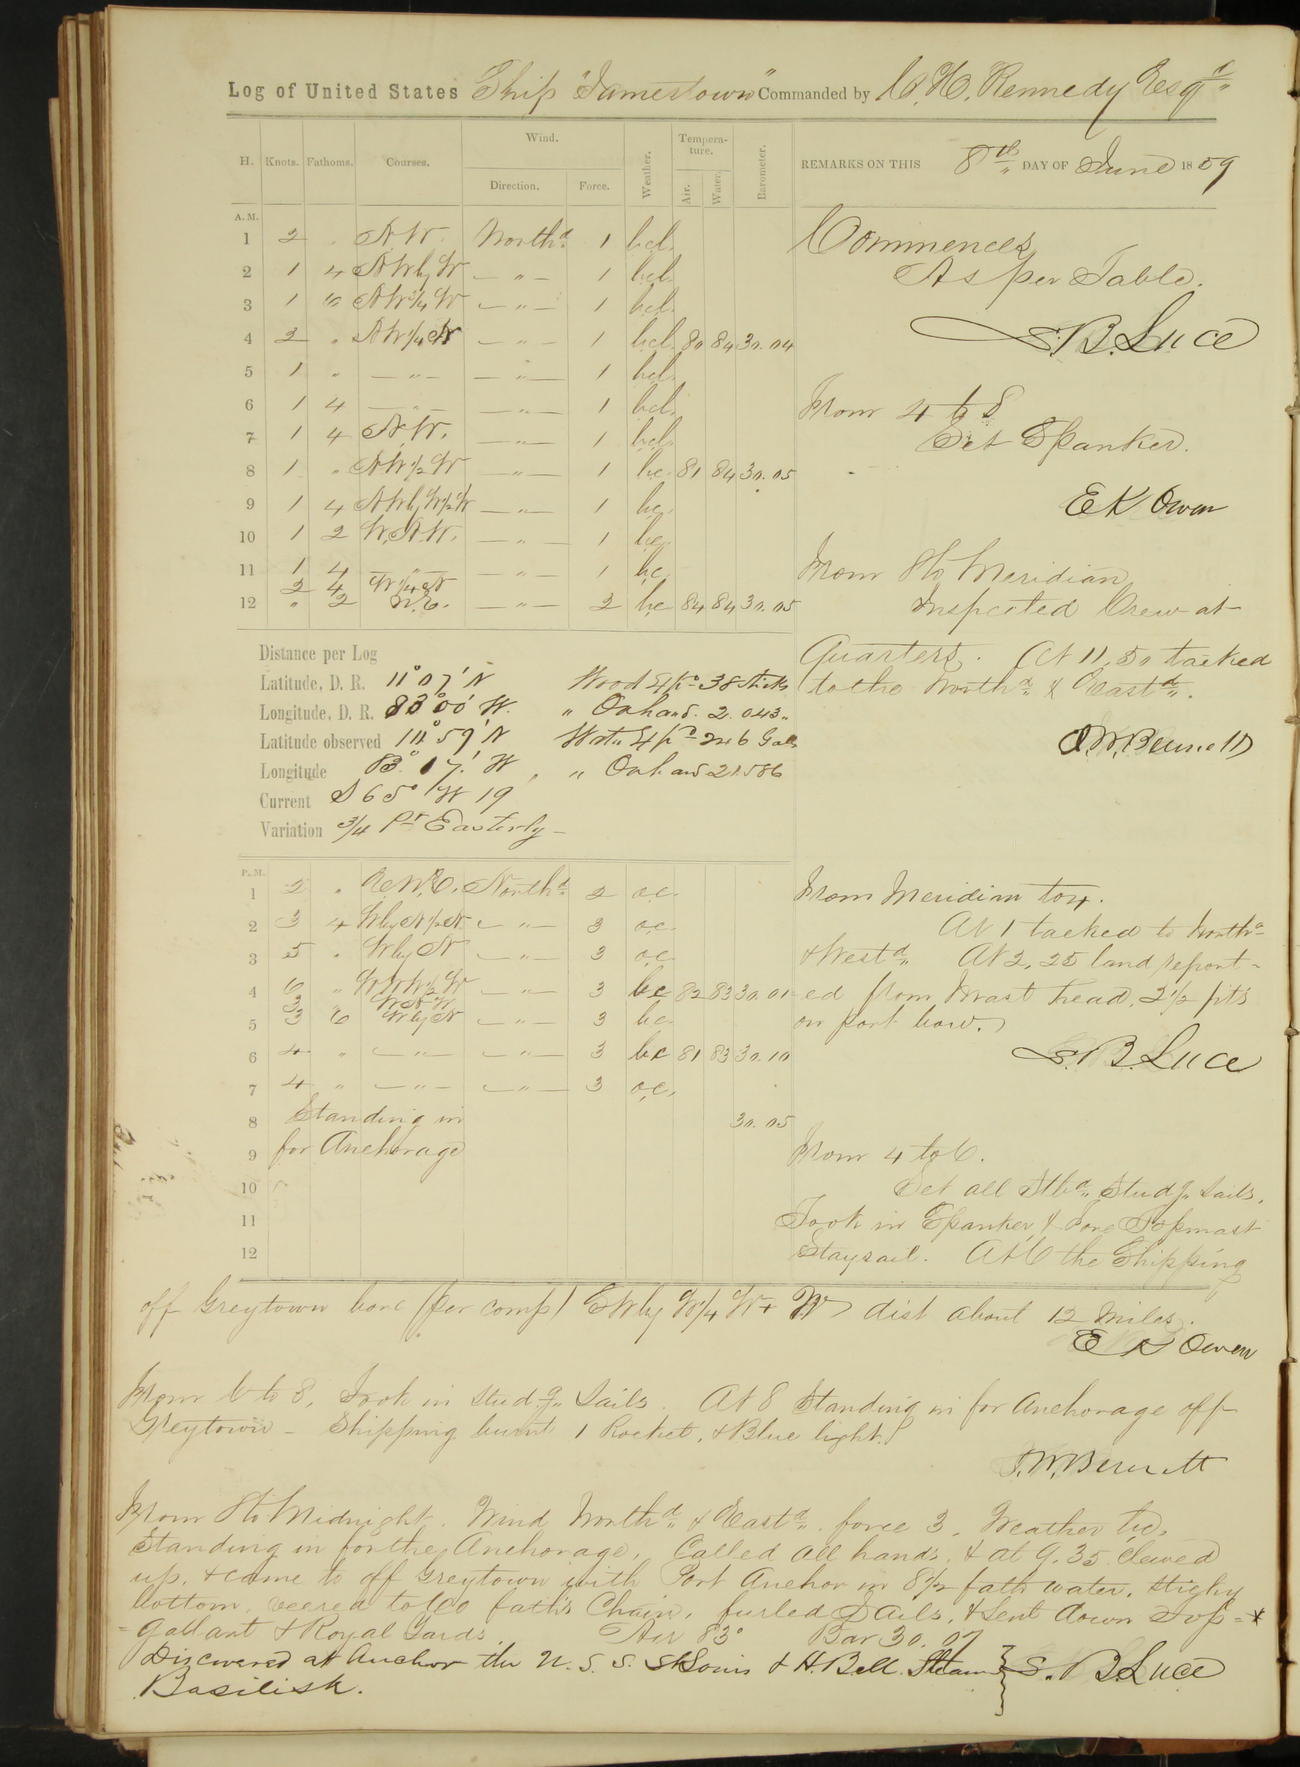 Log of United States Ship "Jamestown" Commanded by C. H. Kennedy Esqr
H. Knots. Fathoms. Courses. Wind. Direction. Force. Weather. Tempera-ture. Air. Water. Barometer.
REMARKS ON THIS 8th DAY OF June 1859
A.M.
1 2 " N.W. Northd 1 bcl.
2 1 4 NWbyW — " — 1 bcl.
3 1 6 NW3/4W — " — 1 bcl.
4 2 " NW1/4N — " — 1 bcl. 80 84 30.04
5 1 " — " — — " — 1 bcl.
6 1 4 — " — — " — 1 bcl.
7 1 4 N.W. — " — 1 bcl.
8 1 " NW1/2W — " — 1 bc. 81 84 30.05
9 1 4 NWbyW1/2W — " — 1 bc.
10 1 2 W.N.W. — " — 1 bc.
11 1 4 — " — — " — 1 bc.
2 4 W1/4N
12 " 2 N.E. — " — 2 bc 84 84 30.05
Commences
As per Table.
S. B. Luce
From 4 to 8
Set Spanker.
E K Owen
From 8 to Meridian
Inspected Crew at
Quarters. At 11,50 tacked
to the Northd & Eastd.
J. W. Bennett
Distance per Log
Latitude, D. R. 11° 07' N Wood Expd 38 sticks
Longitude, D. R. 83° 00' W. " On hand. 2.043 "
Latitude observed 10° 59' N Water Expd 246 Gals
Longitude 83° 17' W , " On hand 21586
Current S 65° W 19
Variation 3/4 Pt Easterly —
P.M.
1 2 " E.N.E. Northd 2 o.c.
2 3 4 WbyN1/2N — " — 3 o.c.
3 5 " WbyN — " — 3 o.c.
4 6 " WNW1/2W — " — 3 bc 82 83 30.01
3 " WNW
5 3 6 WbyN — " — 3 bc.
6 4 " — " — — " — 3 bc 81 83 30.10
7 4 " — " — — " — 3 o.c.
8 Standing in 30.05
9 for Anchorage
10
11
12
From Meridian to 4.
At 1 tacked to Northd
& Westd. At 2,25 land report-
ed from Mast head, 2 1/2 pts
on port bow.
S. B. Luce
From 4 to 6.
Set all Stbd Studg Sails.
Took in Spanker & Fore Topmast
Staysail. At 6 the Shipping
off Greytown bore (per comp) W dist about 12 Miles.
E K Owen
From 6 to 8, Took in Studg Sails. At 8 Standing in for Anchorage off
Greytown – Shipping burnt 1 Rocket, & Blue light.
J. W. Bennett
From 8 to Midnight. Wind Northd & Eastd. force 3. Weather bc.
Standing in for the Anchorage, Called all hands, & at 9.35 clewed
up, & came to off Greytown with Port Anchor in 8 1/2 faths water,
bottom, veered to 60 faths Chain, furled Sails, & Sent down Top-
gallant & Royal Yards Air 83° Bar 30.07
Discovered at Anchor the U. S. S. St Louis & H. B. M. Steamer S. B. Luce
Basilisk.